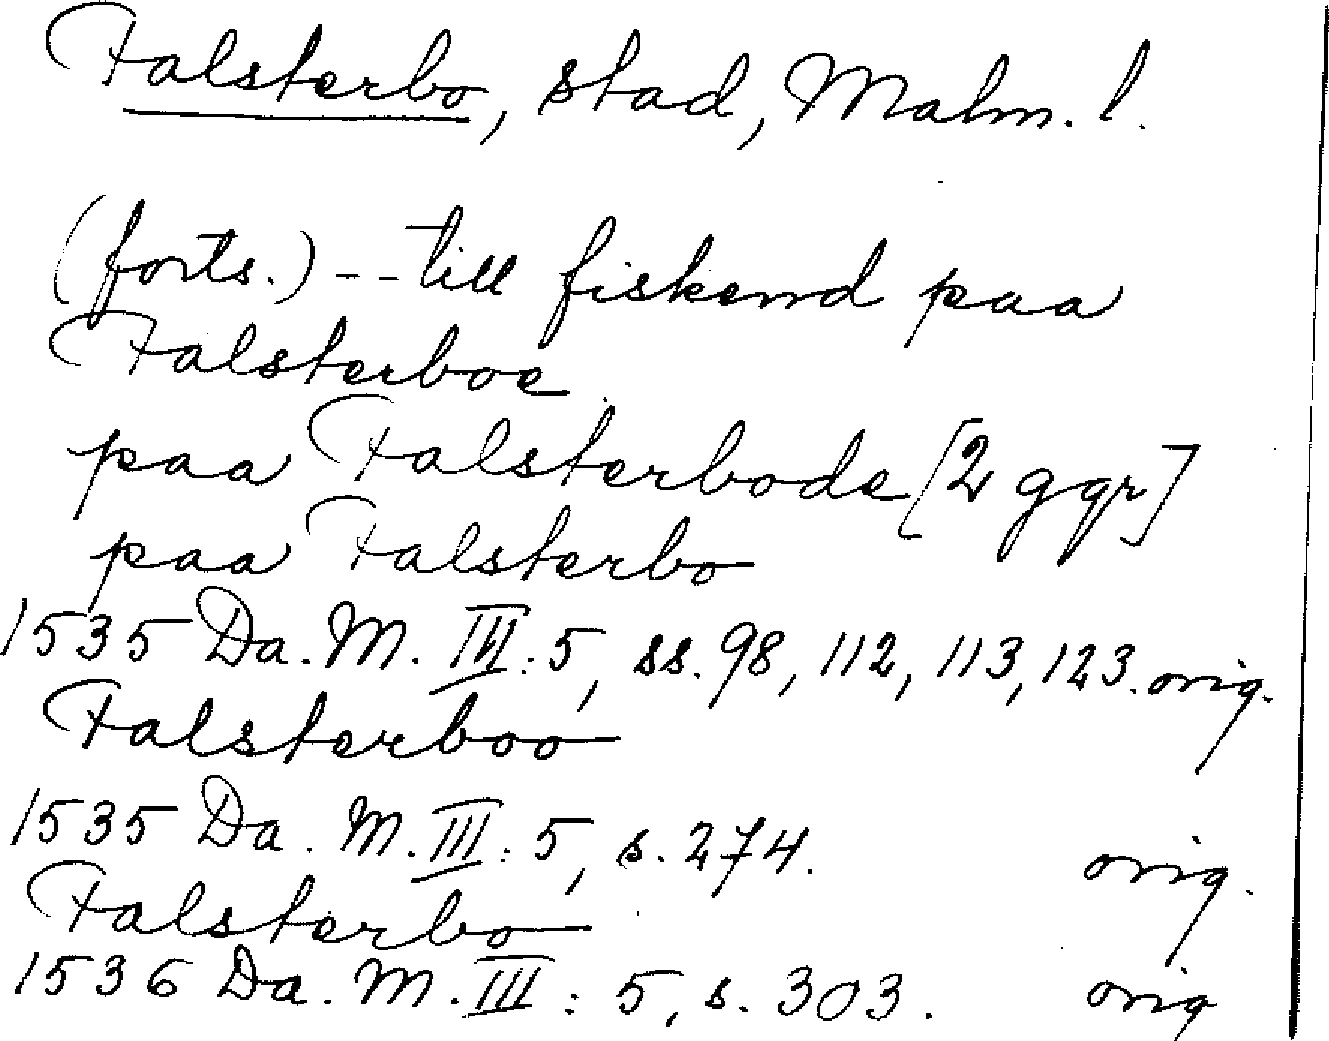 Falsterbo, stad, Malm. l.
(forts.) - - till fiskend paa
Falsterboe
paa Falsterbode [2 ggr]
paa Falsterbo
1535 Da. M. III: 5, ss. 98, 112, 113, 123. orig.
Falsterboo
1535 Da. M. III: 5, s. 274. orig.
Falsterbo
1536 Da. M. III: 5, s. 303. orig